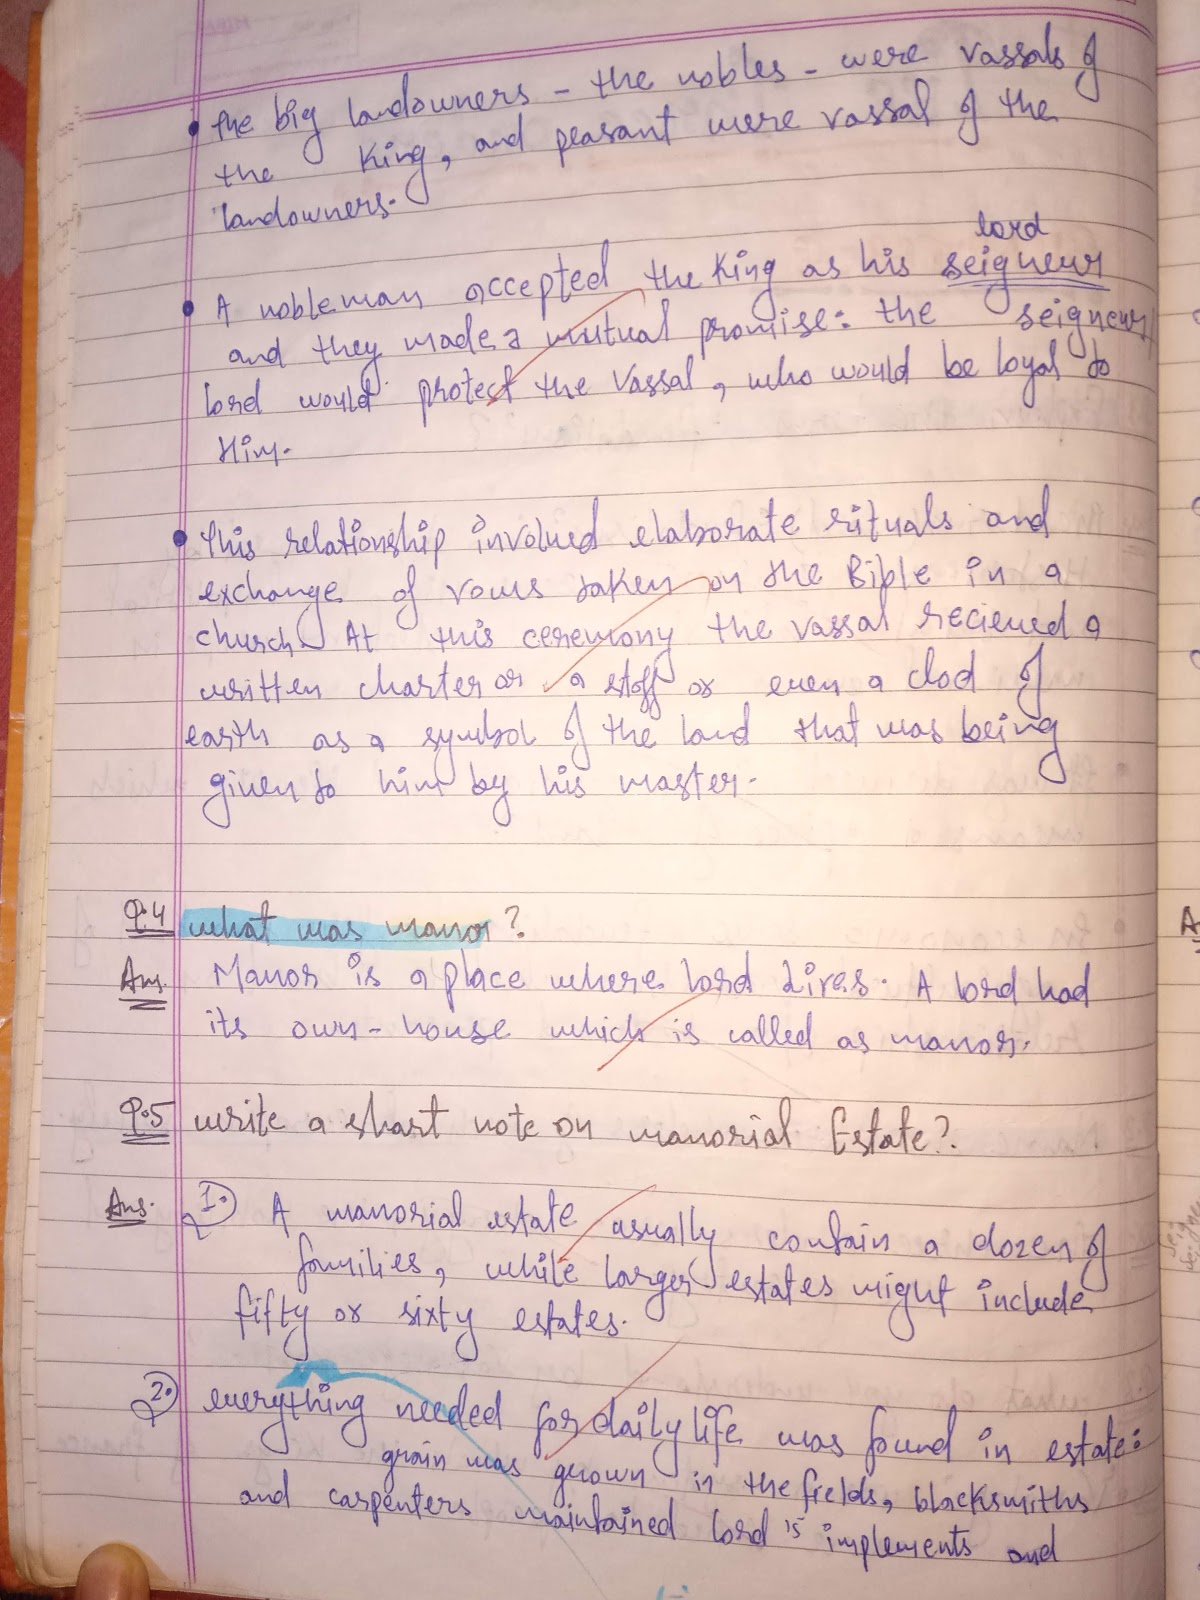 • the big landowners - the nobles - were vassals of
the King, and peasant were vassal of the
landowners.
lord
• A nobleman accepted the King as his seigneur
and they made a mutual promise: the seigneur/
lord would protect the vassal, who would be loyal to
Him.
• This relationship involved elaborate rituals and
exchange of vows taken on the Bible in a
church. At this ceremony the vassal recieved a
written charter or a staff or even a clod of
earth as a symbol of the land that was being
given to him by his master.
Q.4 what was manor?
Ans. Manor is a place where lord Lives. A lord had
its own-house which is called as manor.
Q.5 write a short note on manorial Estate?.
Ans. 1. A manorial estate usually contain a dozen of
families, while larger estates might include
fifty or sixty estates.
2. everything needed for daily life was found in estate:
grain was grown in the fields, blacksmiths
and carpenters maintained lord's implements and